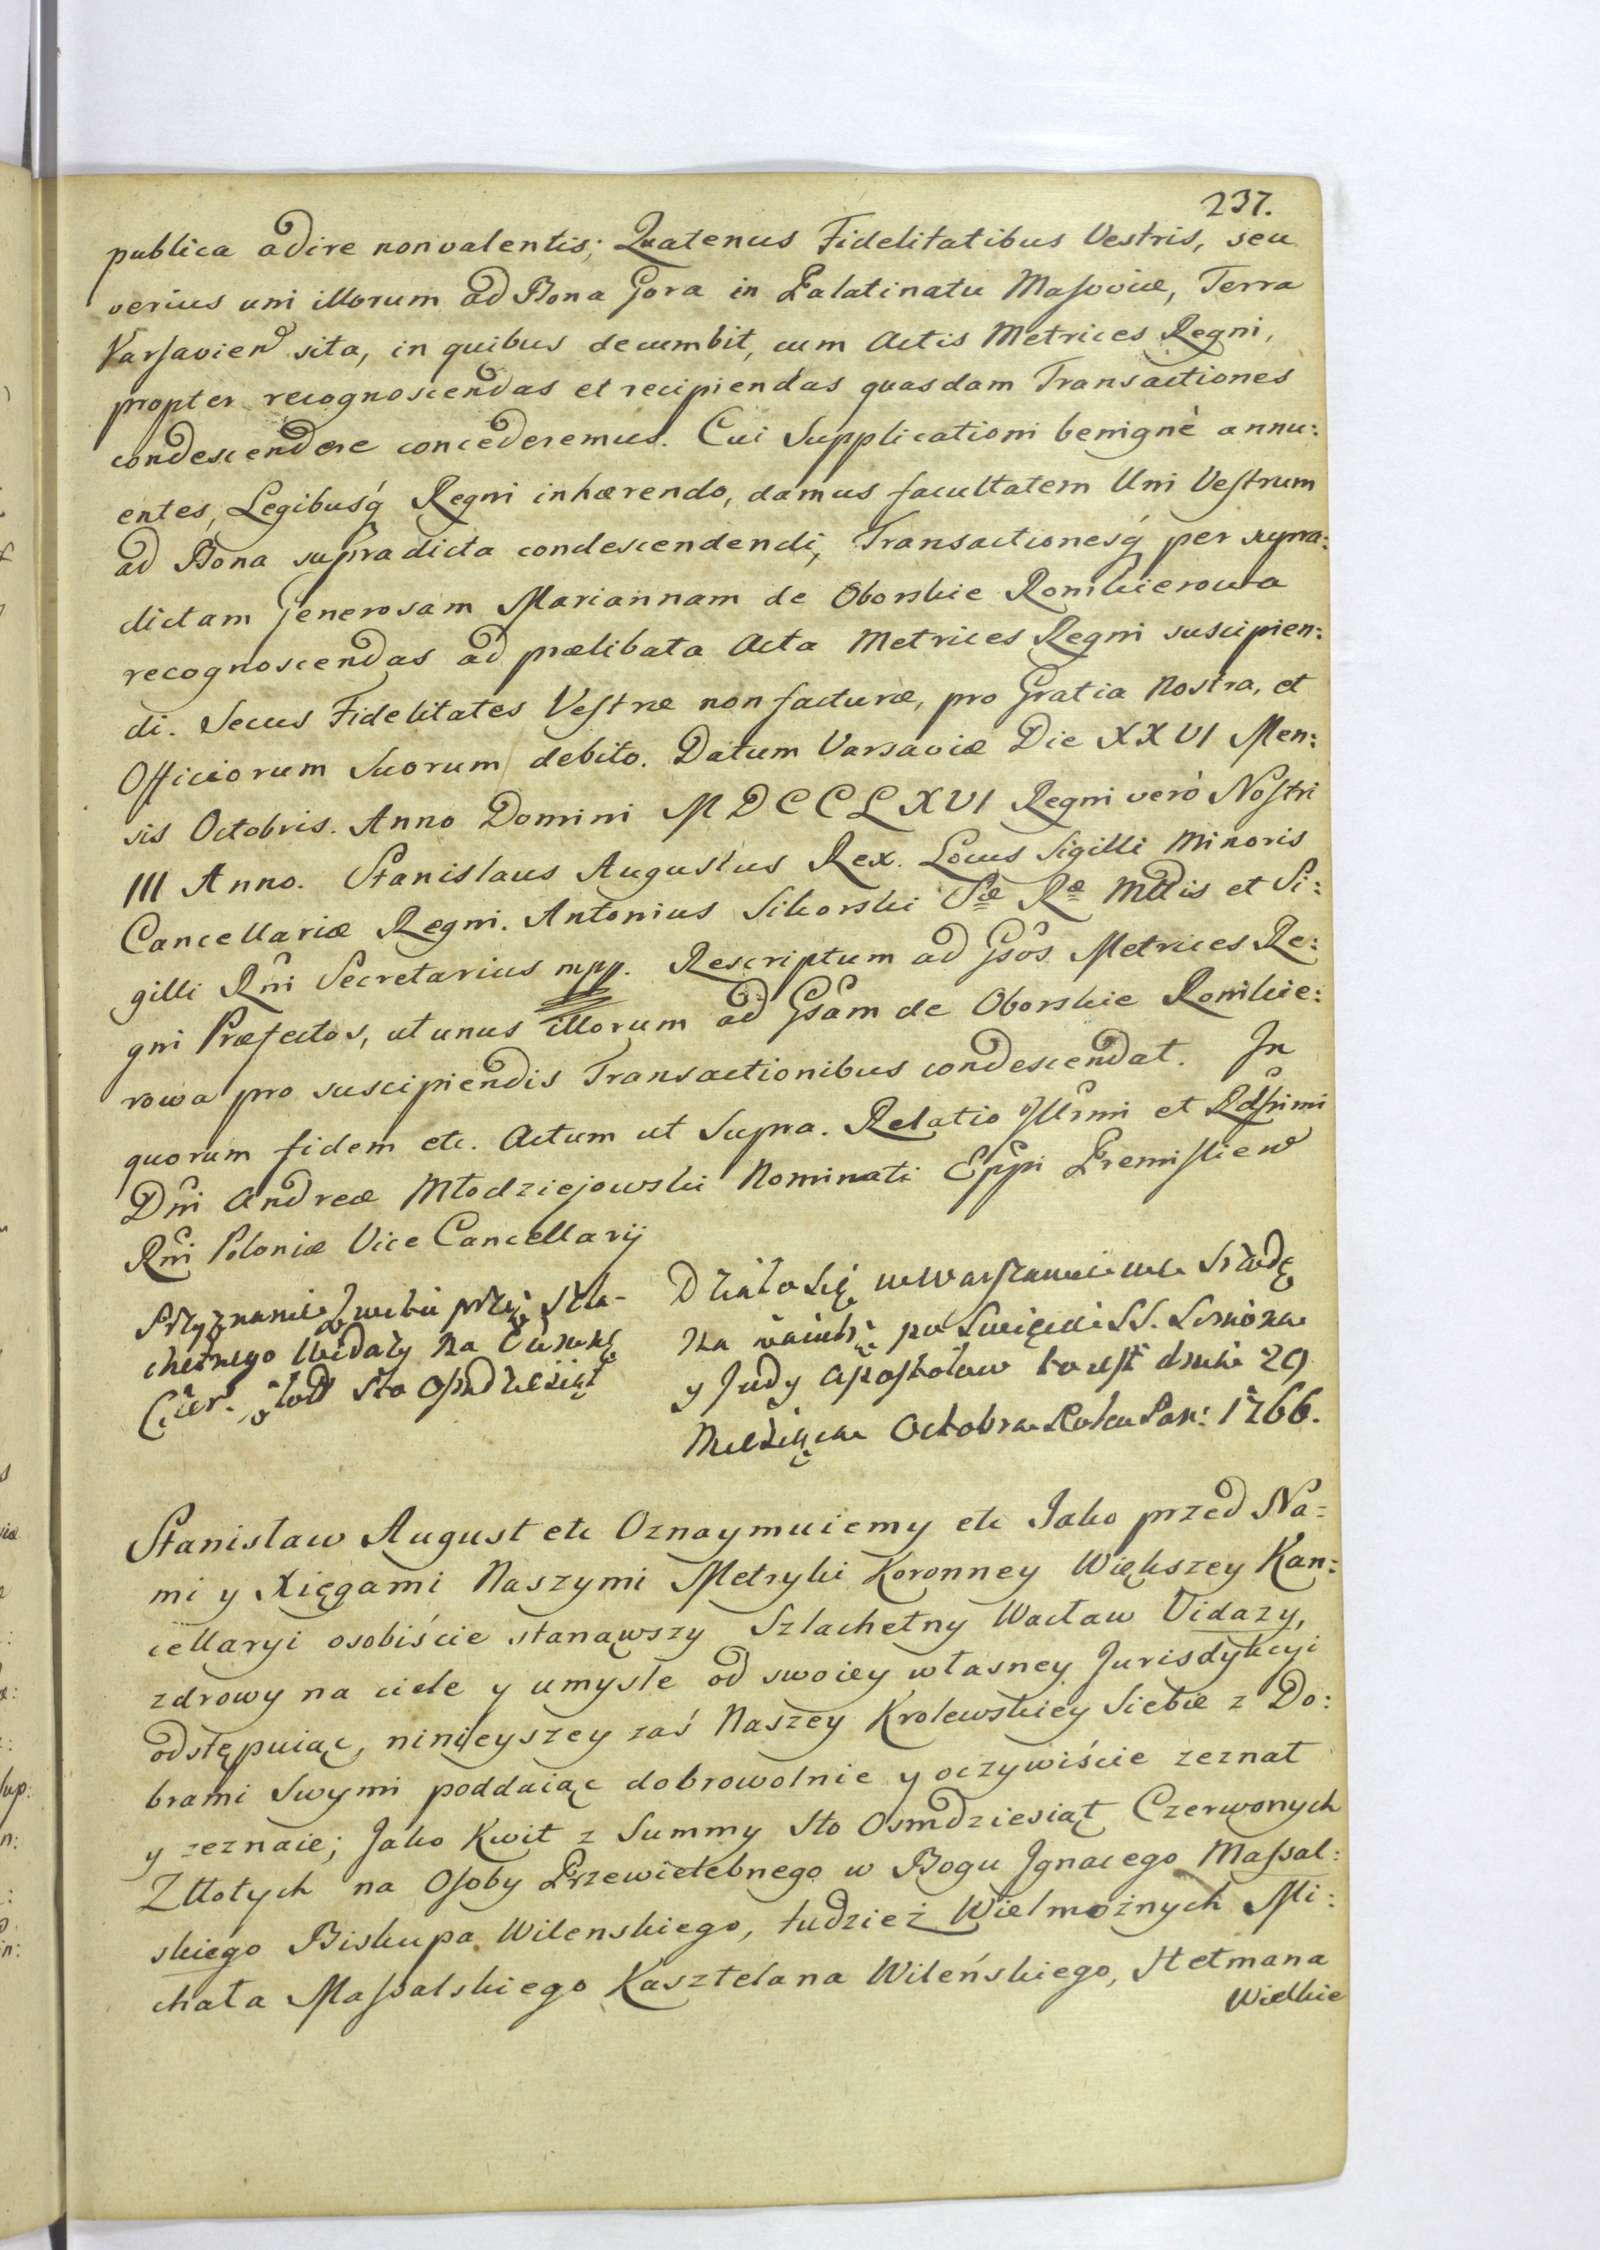 237.
publica adire nonvalentis; Quatenus Fidelitatibus Vestris, seu
verius uni illorum ad Bona Gora in Palatinatu Masoviæ, Terra
Varsavien sita, in quibus decumbit, cum Actis Metrices Regni,
propter recognoscendas et recipiendas quasdam Transactiones
condescendere concederemus. Cui Supplicationi benignè annu:
entes, Legibusq́ Regni inhærendo, damus facultatem Uni Vestrum
ad Bona supradicta condescendendi, Transactionesq́ per supra:
dictam Generosam Mariannam de Oborskie Ronikierowa
recognoscendas ad prælibata Acta Metrices Regni suscipien:
di. Secus Fidelitates Vestræ non facturæ, pro Gratia Nostra, et
Officiorum Suorum debito. Datum Varsaviæ Die XXVI Men:
sis Octobris. Anno Domini MDCCLXVI Regni verò Nostri
III Anno. Stanislaus Augustus Rex. Locus Sigilli Minoris
Cancellariæ Regni. Antonius Sikorski Sæ Ræ Mttis et Si:
gilli Rni Secretarius mpp. Rescriptum ad Gsos Metrices Re:
gni Præfectos, ut unus illorum ad Gsam de Oborskie Ronikie:
rowa pro suscipiendis Transactionibus condescendat. In
quorum fidem etc. Actum ut Supra. Relatio Illrmi et Rdssimi
Dni Andreæ Młodziejowski Nominati Eppi Premislien
Rni Poloniæ Vice Cancellarij
Przyznanie Kwitu przez Szla-
chetnego Widaży na Summę
Czer: złott Sto Osmdziesiąt
Działo się w Warszawie we Srzodę
na zaiutrz po Swięcie SS. Szymona
y Judy Apostołow to iest dnia 29
Miesiąca Octobra Roku Pan: 1766.
Stanisław August etc Oznaymuiemy etc Jako przed Na=
mi y Xięgami Naszymi Metryki Koronney Większey Kan:
cellaryi osobiście stanąwszy Szlachetny Wacław Vidazy,
zdrowy na ciele y umysle od swoiey własney Jurisdykcyi
odstępuiąc, ninieyszey zaś Naszey Krolewskiey Siebie z Do:
brami Swymi poddaiąc dobrowolnie y oczywiście zeznał
y zeznaie; Jako Kwit z Summy Sto Osmdziesiąt Czerwonych
Złłotych na Osoby Przewielebnego w Bogu Jgnacego Massal:
skiego Biskupa Wilenskiego, tudzież Wielmożnych Mi:
chała Massalskiego Kasztelana Wileńskiego, Hetmana
Wielkie